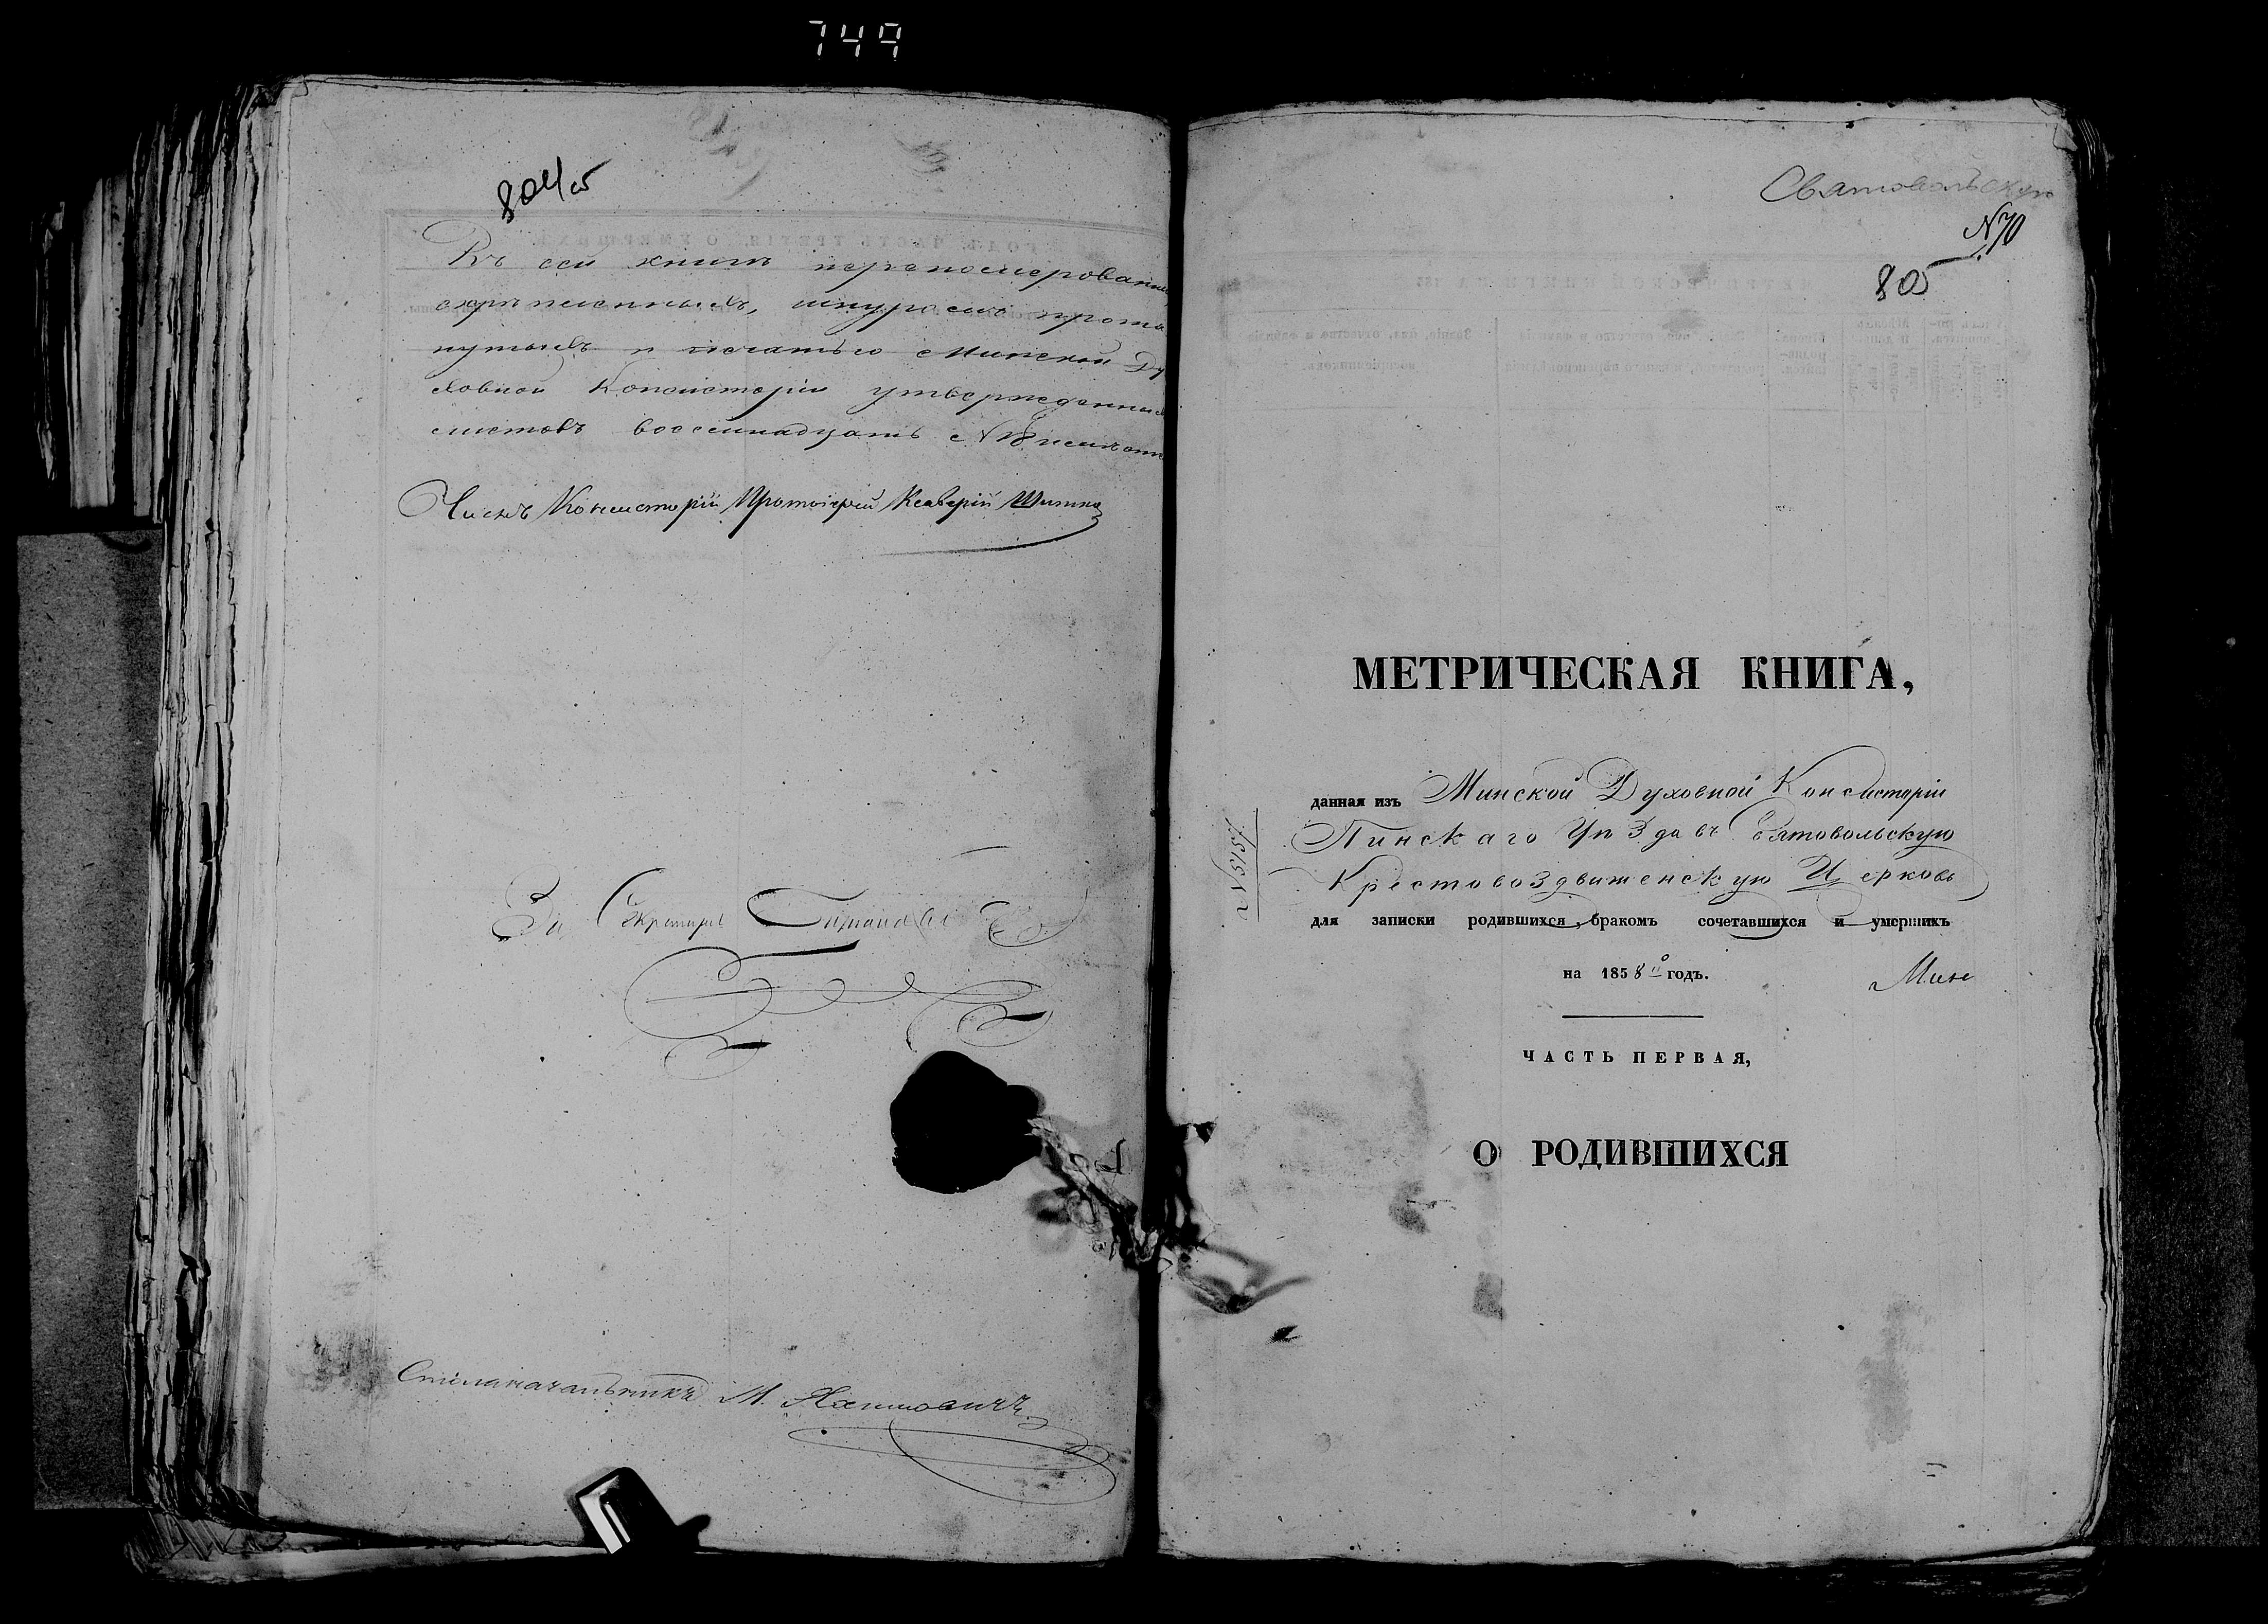 749
804 об
Въ сей книгѣ перенумерованныхъ
скрѣпленныхъ, шнуромъ протя
нутыхъ и печатью Минской Ду
ховной Консисторіи утвержденныхъ
листовъ восемнадцать №18
Членъ Консисторіи Протоіерей Ксаверій
За Секретаря
Столоначальникъ М. Яхимовичъ
Святовольскую
№70
805
МЕТРИЧЕСКАЯ КНИГА,
данная изъ Минской Духовной Консисторіи
Пинскаго Уѣзда въ Святовольскую
Крестовоздвиженскую Церковь
для записки родившихся, бракомъ сочетавшихся и умершихъ
на 1858 годъ.
Мин
ЧАСТЬ ПЕРВАЯ,
О РОДИВШИХСЯ
№5157